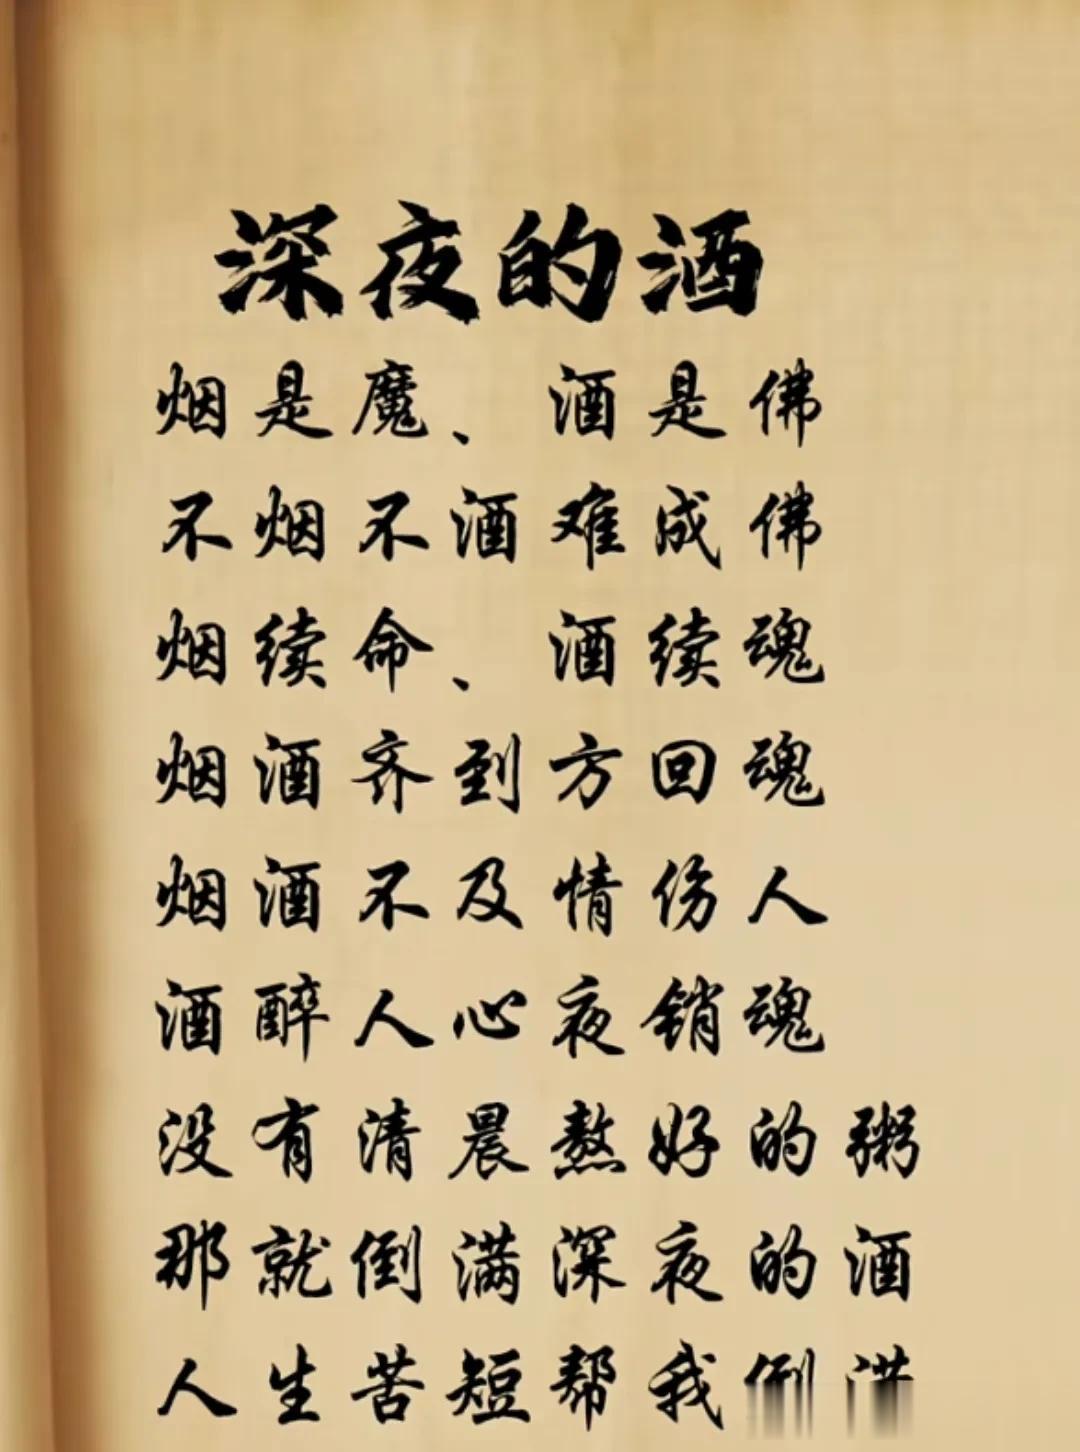 深夜的酒
烟是魔、酒是佛
不烟不酒难成佛
烟续命、酒续魂
烟酒齐到方回魂
烟酒不及情伤人
酒醉人心夜销魂
没有清晨熬好的粥
那就倒满深夜的酒
人生苦短帮我倒满